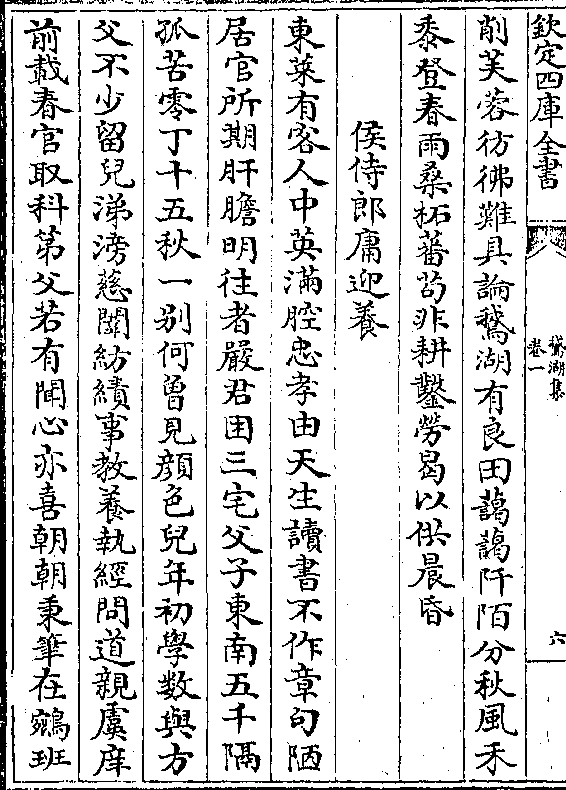 欽定四庫全書
鵝湖集
卷一
六
削芙蓉彷彿難具論鵝湖有良田藹藹阡陌分秋風禾
黍登春雨桑柘蕃苟非耕鑿勞曷以供晨昏
侯侍郎庸迎養
東萊有客人中英滿腔忠孝由天生讀書不作章句陋
居官所期肝膽明往者嚴君困三宅父子東南五千隔
孤苦零丁十五秋一别何曾見顔色兒年初學数與方
父不少留兒涕滂慈闈紡績事教養執經問道親虞庠
前載春官取科第父若有聞心亦喜朝朝秉筆在鵷班